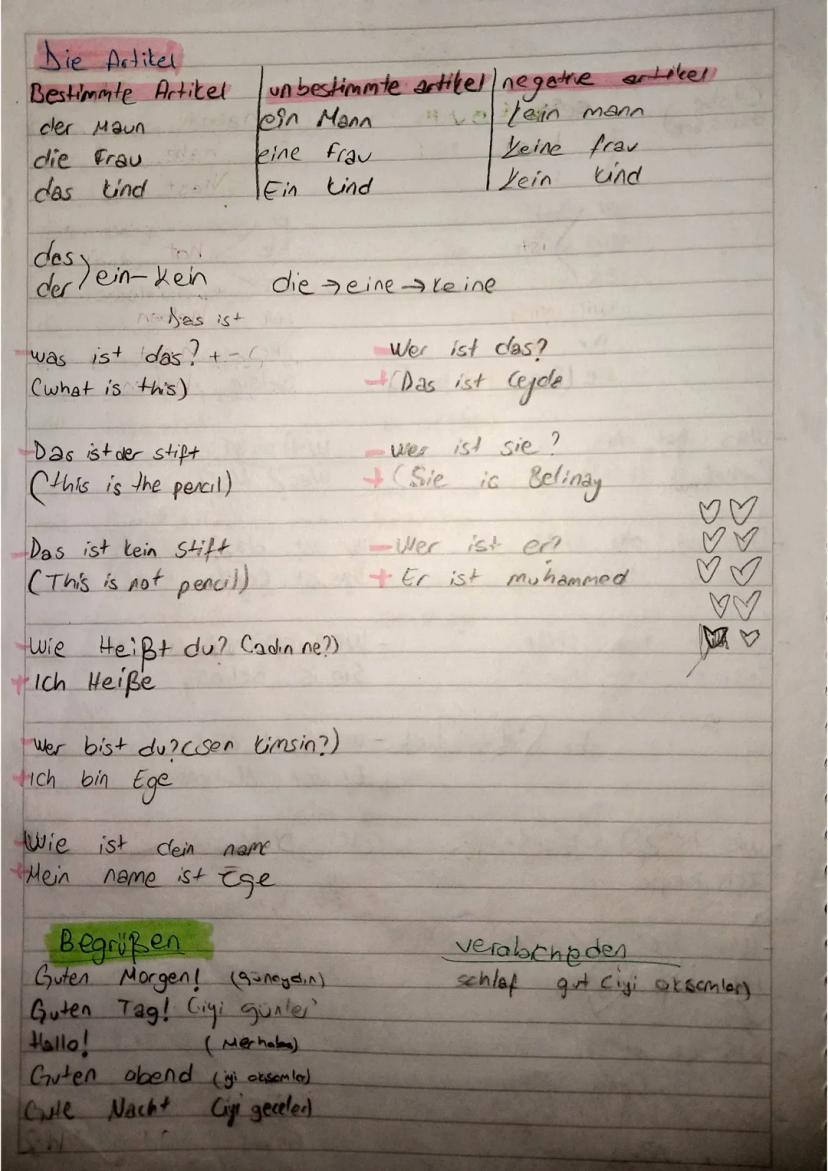 Die Artikel
Bestimmte Artikel | unbestimmte artikel | negative artikel
der Maun | ein Mann | kein mann
die Frau | eine frau | keine frau
das kind | Ein kind | kein kind
das
der ein-kein die → eine → keine
Das ist
- was ist das? + - - Wer ist das?
(what is this) + (Das ist Ceyda
- Das ist der stift - wer ist sie?
(this is the pencil) + (Sie is Belinay
- Das ist kein stift - Wer ist er?
(This is not pencil) + Er ist muhammed
- Wie Heißt du? (adın ne?)
+ Ich Heiße
- wer bist du? (sen kimsin?)
+ Ich bin Ege
- Wie ist dein name
+ Mein name ist Ege
Begrüßen verabscheden
Guten Morgen! (günaydın) schlaf gut (iyi aksamlar)
Guten Tag! (iyi günler
Hallo! (Merhaba)
Guten abend (iyi aksamlar)
Gute Nacht (iyi geceler)